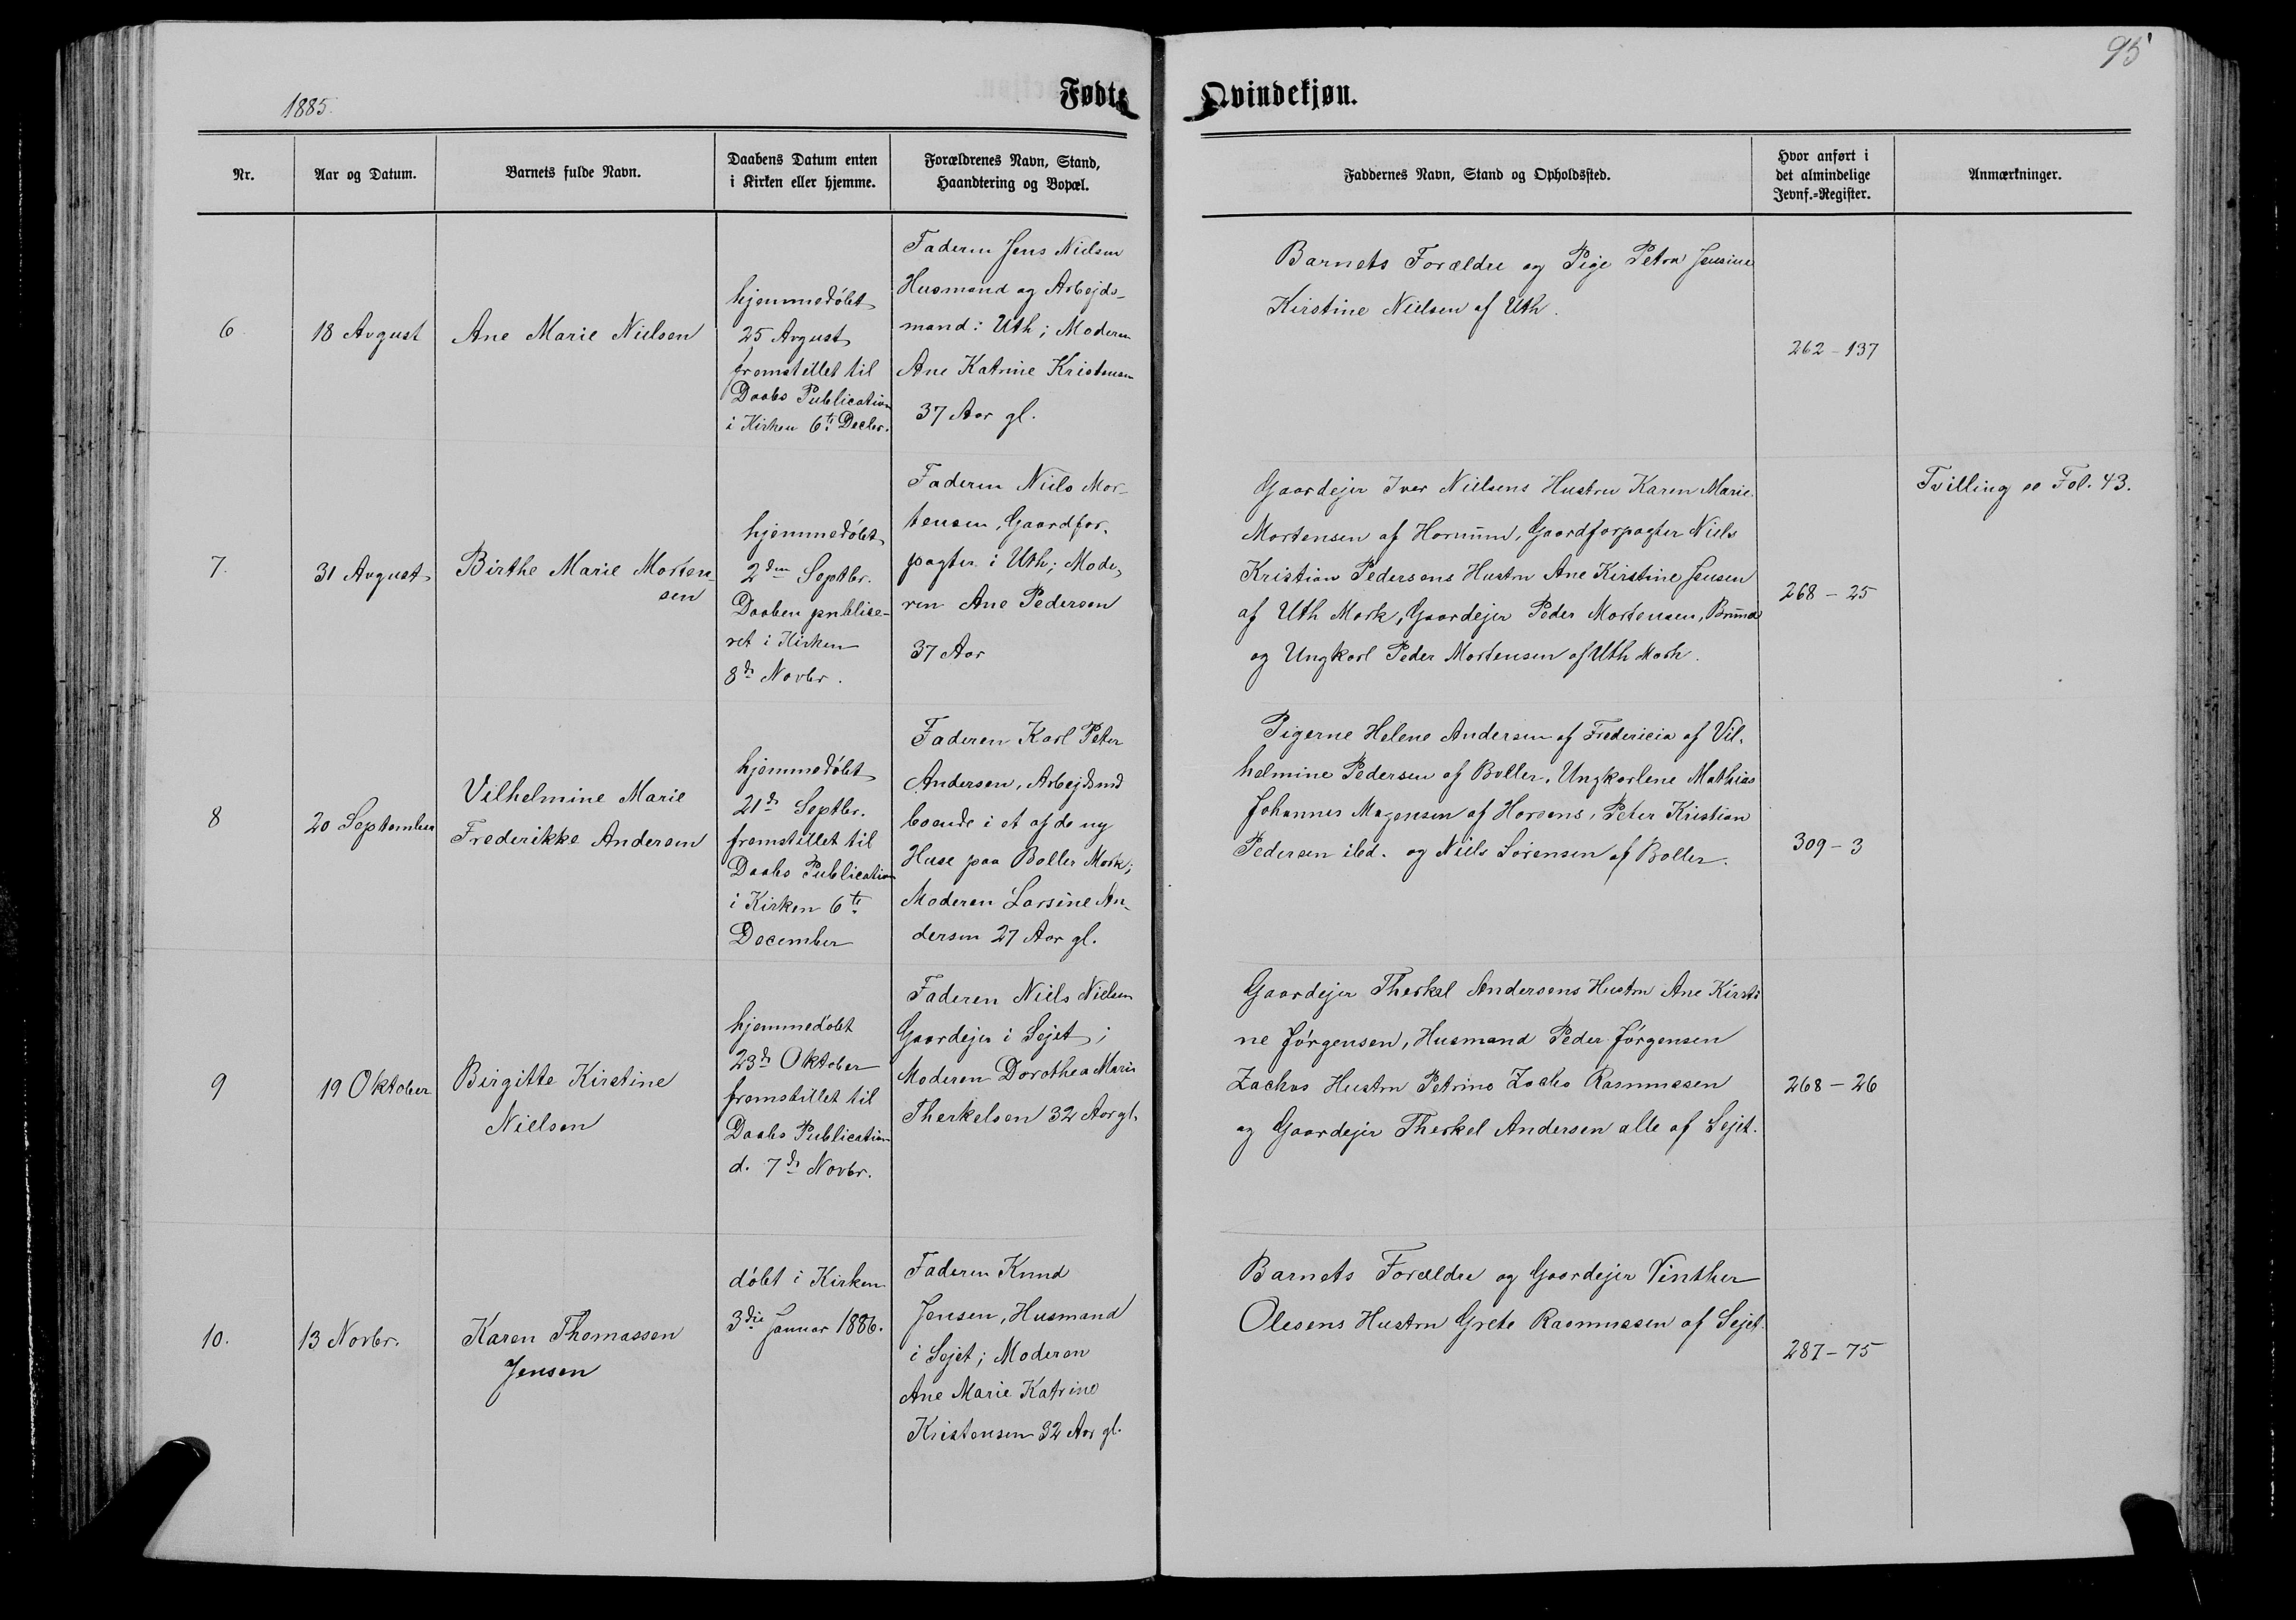 95
1885.
Fødte Qvindekjøn.
Nr.
Aar og Datum.
Barnets fulde Navn.
Daabens Datum enten
i Kirken eller hjemme.
Forældrenes Navn, Stand,
Haandtering og Bopæl.
Faddernes Navn, Stand og Opholdssted.
Hvor anført i
det almindelige
Jevnf.=Register.
Anmærkninger.
6
18 Avgust
Ane Marie Nielsen
hjemmedøbt
25 Avgust
fremstillet til
Daabs Publication
i Kirken 6te Decbr.
Faderen Jens Nielsen
Husmand og Arbejds-
mand i Uth; Moderen
Ane Katrine Kristensen
37 Aar gl.
Barnets Forældre og Pige Petra Jensine
Kirstine Nielsen af Uth.
262-137
7.
31 Avgust
Birthe Marie Morten-
sen
hjemmedøbt
2den Septbr.
Daaben publice-
ret i Kirken
8de Novbr.
Faderen Niels Mor-
tensen, Gaardfor-
pagter i Uth; Mode-
ren Ane Pedersen
37 Aar
Gaardejer Iver Nielsens Hustru Karen Marie
Mortensen af Hornum, Gaardforpagter Niels
Kristian Pedersens Hustru Ane Kirstine Jensen
af Uth Mark, Gaardejer Peder Mortensen,
og Ungkarl Peder Mortensen af Uth Mark.
268-25
Tvilling se Fol. 43.
8
20 September
Vilhelmine Marie
Frederikke Andersen
hjemmedøbt
21de Septbr.
fremstillet til
Daabs Publication
i Kirken 6te
December
Faderen Karl Peter
Andersen, Arbejdsmd
boende i et af de ny
Huse paa Boller Mark;
Moderen Larsine An-
dersen 27 Aar gl.
Pigerne Helene Andersen af Fredericia af Vil-
helmine Pedersen af Boller, Ungkarlene Mathias
Johannes Magensen af Horsens, Peter Kristian
Pedersen ibd. og Niels Sørensen af Boller.
309-3
9
19 Oktober
Birgitte Kirstine
Nielsen
hjemmedøbt
23de Oktober
fremstillet til
Daabs Publication
d. 7de Novbr.
Faderen Niels Nielsen
Gaardejer i Sejet;
Moderen Dorothea Marie
Therkelsen 32 Aar gl.
Gaardejer Therkel Andersens Hustru Ane Kirsti
ne Jørgensen, Husmand Peder Jørgensen
Hustru Petrine Rasmussen
og Gaardejer Therkel Andersen alle af Sejet.
268-26
10.
13 Novbr.
Karen Thomassen
Jensen
døbt i Kirken
3die Januar 1886.
Faderen Knud
Jensen, Husmand
i Sejet; Moderen
Ane Marie Katrine
Kristensen 32 Aar gl.
Barnets Forældre og Gaardejer Vinther
Olesens Hustru Grete Rasmussen af Sejet.
287-75